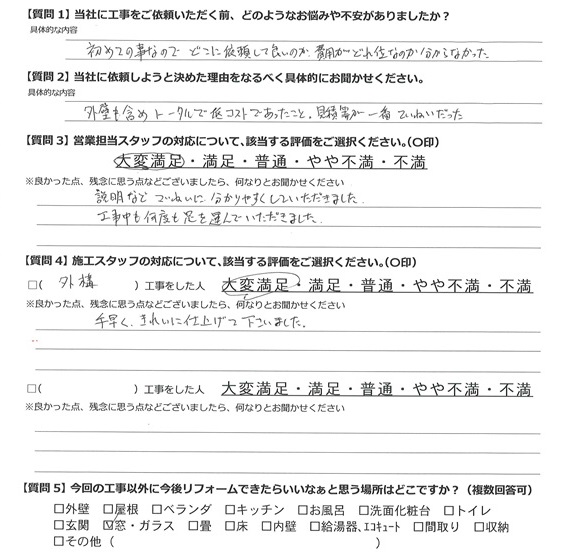 【質問 1】当社に工事をご依頼いただく前、どのようなお悩みや不安がありましたか？
具体的な内容
初めての事なので どこに依頼して良いのか、費用がどれ位なのか分からなかった
【質問 2】当社に依頼しようと決めた理由をなるべく具体的にお聞かせください。
具体的な内容
外壁も含め トータルで低コストであったこと。見積等が一番 ていねいだった
【質問 3】営業担当スタッフの対応について、該当する評価をご選択ください。(〇印)
大変満足・満足・普通・やや不満・不満
※良かった点、残念に思う点などございましたら、何なりとお聞かせください
説明など ていねいに 分かりやすくしていただきました。
工事中も何度も足を運んでいただきました。
【質問 4】施工スタッフの対応について、該当する評価をご選択ください。(〇印)
□( 外構 ) 工事をした人 大変満足・満足・普通・やや不満・不満
※良かった点、残念に思う点などございましたら、何なりとお聞かせください
手早く、きれいに仕上げて下さいました。
□( ) 工事をした人 大変満足・満足・普通・やや不満・不満
※良かった点、残念に思う点などございましたら、何なりとお聞かせください
【質問 5】今回の工事以外に今後リフォームできたらいいなぁと思う場所はどこですか？（複数回答可）
□外壁 □屋根 □ベランダ □キッチン □お風呂 □洗面化粧台 □トイレ
□玄関 ☑窓・ガラス □畳 □床 □内壁 □給湯器、エコキュート □間取り □収納
□その他（ ）